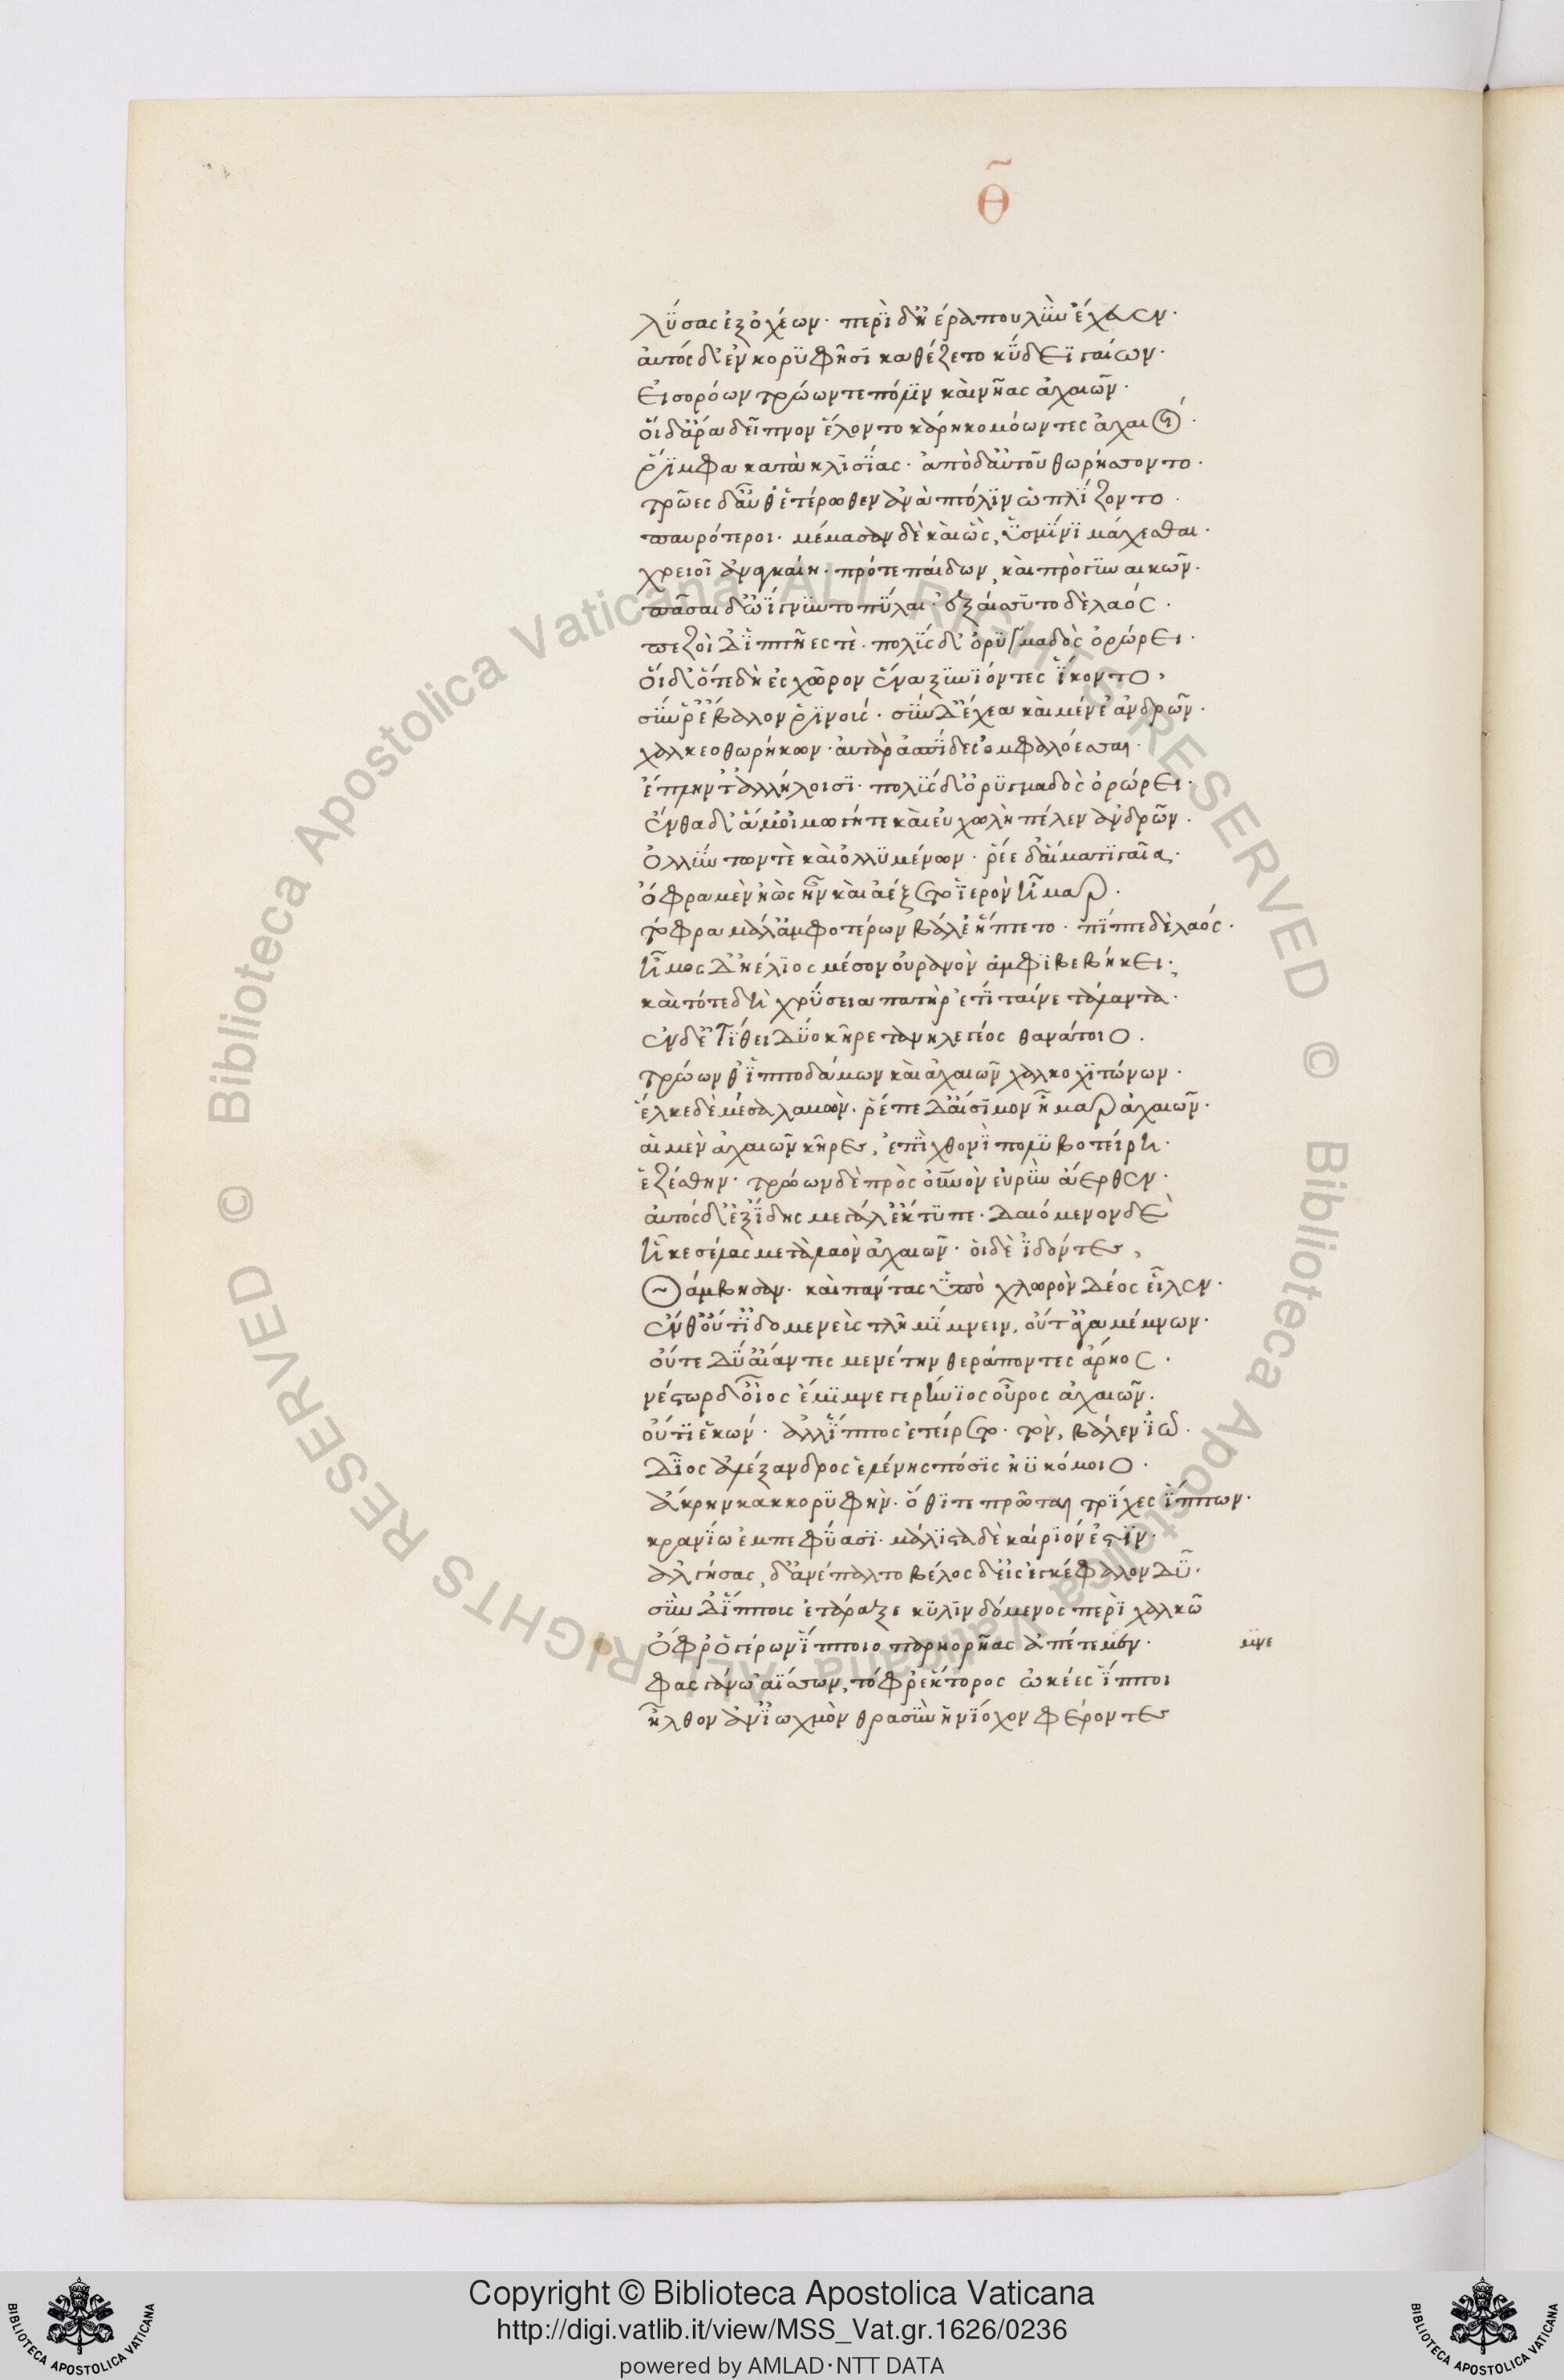 θ
λύσας ἐξ ὀχέων· περὶ δ' ἠέρα πουλὺν ἔχευεν·
αὐτὸς δ' ἐν κορυφῇσι καθέζετο κύδεϊ γαίων·
εἰσορόων τρώων τε πόλιν καὶ νῆας ἀχαιῶν·
οἱ δ' ἄρα δεῖπνον ἕλοντο καρηκομόωντες ἀχαιοί·
ῥίμφα κατὰ κλισίας· ἀπὸ δ' αὐτοῦ θωρήσσοντο·
τρῶες δ' αὖθ' ἑτέρωθεν ἀνὰ πτόλιν ὡπλίζοντο·
παυρότεροι· μέμασαν δὲ καὶ ὧς, ὑσμῖνι μάχεσθαι·
χρειοῖ ἀναγκαίη· πρό τε παίδων, καὶ πρὸ γυναικῶν·
πᾶσαι δ' ὠίγνυντο πύλαι· ἐξ δ' ἔσσυτο δὲ λαός·
πεζοὶ δ' ἱππῆές τε· πολὺς δ' ὀρυμαγδὸς ὀρώρει·
οἱ δ' ὅτε δὴ ἐς χῶρον ἕνα ξυνιόντες ἵκοντο,
σύν ῥ' ἔβαλον ῥινούς· σὺν δ' ἔγχεα καὶ μένε' ἀνδρῶν·
χαλκεοθωρήκων· ἀτὰρ ἀσπίδες ὀμφαλόεσσαι·
ἔπληντ' ἀλλήλοισι· πολὺς δ' ὀρυμαγδὸς ὀρώρει·
ἔνθα δ' ἅμ' οἰμωγή τε καὶ εὐχωλὴ πέλεν ἀνδρῶν·
ὀλλύντων τὲ καὶ ὀλλυμένων· ῥέε δ' αἵματι γαῖα·
ὄφρα μὲν ἠὼς ἦν καὶ ἀέξετο ἱερὸν ἦμαρ·
τόφρα μάλ' ἀμφοτέρων βέλε' ἥπτετο· πίπτε δὲ λαός·
ἦμος δ' ἠέλιος μέσον οὐρανὸν ἀμφιβεβήκει·
καὶ τότε δὴ χρύσεια πατὴρ ἐτίταινε τάλαντα·
ἐν δ' ἐτίθει δύο κῆρε τανηλεγέος θανάτοιο·
τρώων θ' ἱπποδάμων καὶ ἀχαιῶν χαλκοχιτώνων·
ἕλκε δὲ μέσσα λαβών· ῥέπε δ' αἴσιμον ἦμαρ ἀχαιῶν·
αἱ μὲν ἀχαιῶν κῆρες, ἐπὶ χθονὶ πουλυβοτείρη·
ἑζέσθην· τρώων δὲ πρὸς οὐρανὸν εὐρὺν ἄερθεν·
αὐτὸς δ' ἐξ ἴδης μεγάλ' ἔκτυπε· δαιόμενον δὲ
ἧκε σέλας μετὰ λαὸν ἀχαιῶν· οἱ δὲ ἰδόντες,
θάμβησαν· καὶ πάντας ὑπὸ χλωρὸν δέος εἷλεν·
ἔνθ' οὔτ' ἰδομενεὺς τλῆ μίμνειν, οὔτ' ἀγαμέμνων·
οὔτε δύ' αἴαντες μενέτην θεράποντες ἄρηος·
νέστωρ δ' οἶος ἔμιμνε γερήνιος οὖρος ἀχαιῶν·
οὔτι ἑκών· ἀλλ' ἵππος ἐτείρετο· τὸν, βάλεν ἰῶ·
δῖος ἀλέξανδρος ἑλένης πόσις ἠυκόμοιο·
ἄκρην κὰκ κορυφήν· ὅθι τε πρῶται τρίχες ἵππων·
κρανίω ἐμπεφύασι· μάλιστα δὲ καίριόν ἐστιν·
ἀλγήσας, δ' ἀνέπαλτο βέλος δ' εἰς ἐγκέφαλον δῦ·
σὺν δ' ἵππους ἐτάραξε κυλινδόμενος περὶ χαλκῶ
ὄφρ' ὁ γέρων ἵπποιο παρηορίας ἀπέτεμεν· μνε
φασγάνω ἀίσσων, τόφρ' ἕκτορος ὠκέες ἵπποι
ἦλθον ἀν' ἰωχμὸν θρασὺν ἡνίοχον φέροντες
© Biblioteca Apostolica Vaticana ALL RIGHTS RESERVED
© Biblioteca Apostolica Vaticana ALL RIGHTS RESERVED
Copyright © Biblioteca Apostolica Vaticana
http://digi.vatlib.it/view/MSS_Vat.gr.1626/0236
powered by AMLAD·NTT DATA
BIBLIOTECA APOSTOLICA VATICANA
BIBLIOTECA APOSTOLICA VATICANA